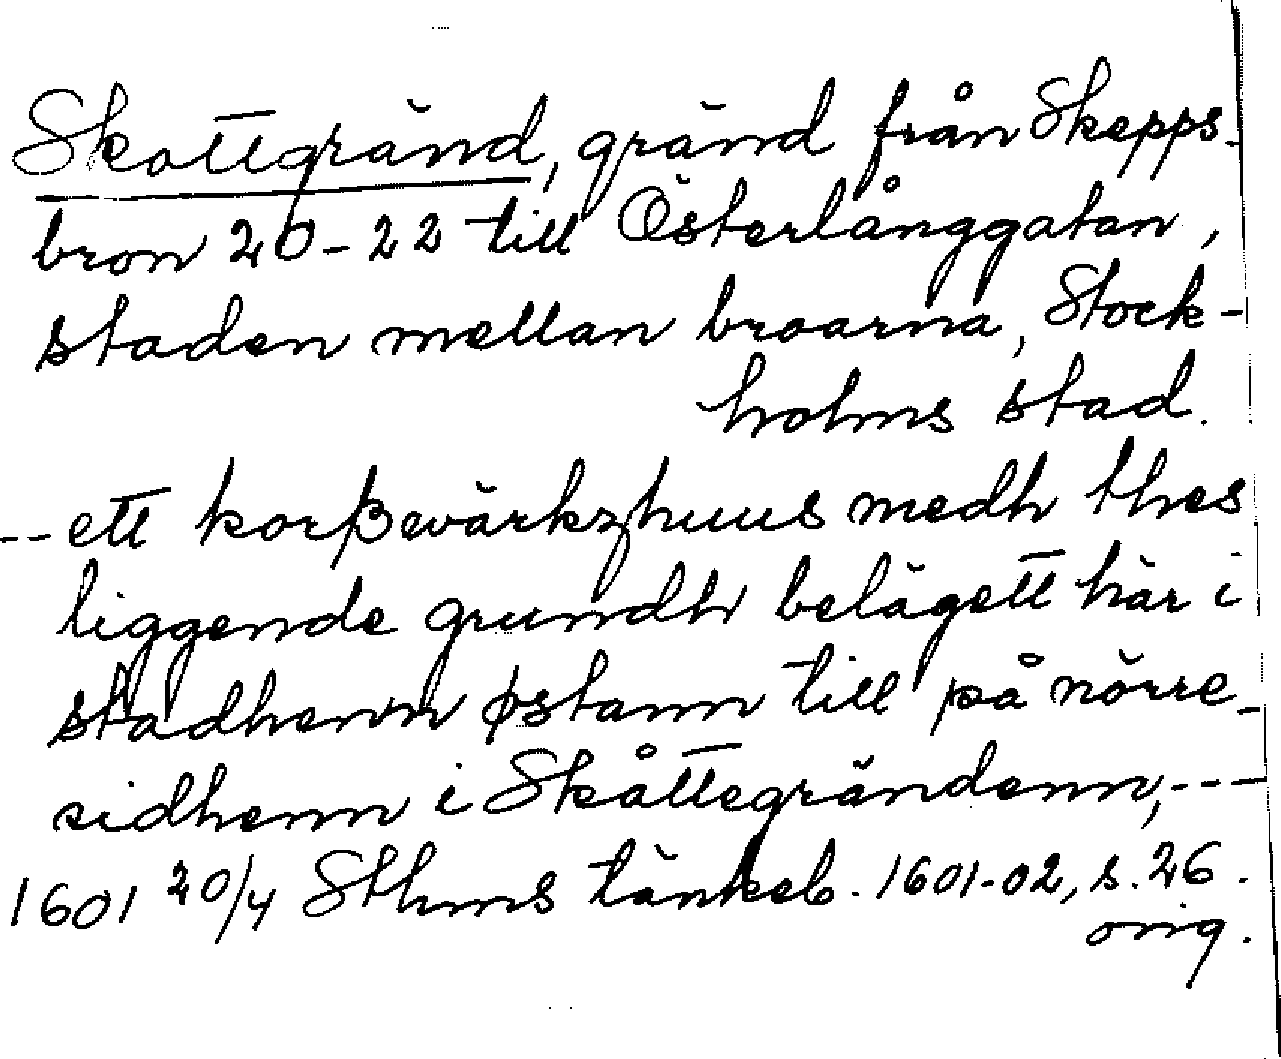 Skottgränd, gränd från Skepps-
bron 20-22 till Österlånggatan,
staden mellan broarna, Stock-
holms stad.
-- ett korßwärkzhuus medh thes
liggende grundh belägett här i
stadhenn østann till på nörre-
sidhenn i Skåttegrändenn, ---
1601 20/4 Sthms tänkeb. 1601-02, s. 26.
orig.